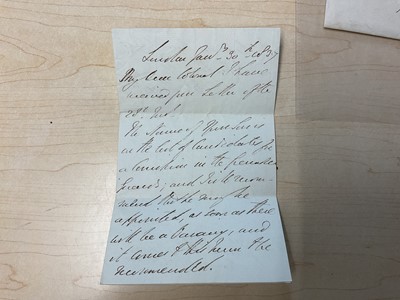 London Jan.y 30th 1837
My dear Colonel I have
received your Letter of the
28th Inst.
The Name of
on the list of Candidates for
a Commission in the
Guards; and I will recom-
mend that he may be
appointed, as soon as there
will be a Vacancy; and
it comes to his turn to be
recommended.